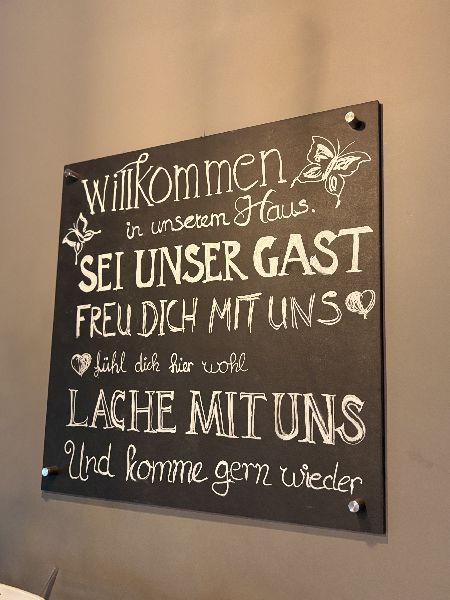 Willkommen
in unserem Haus.
SEI UNSER GAST
FREU DICH MIT UNS
fühl dich hier wohl
LACHE MIT UNS
Und komme gern wieder